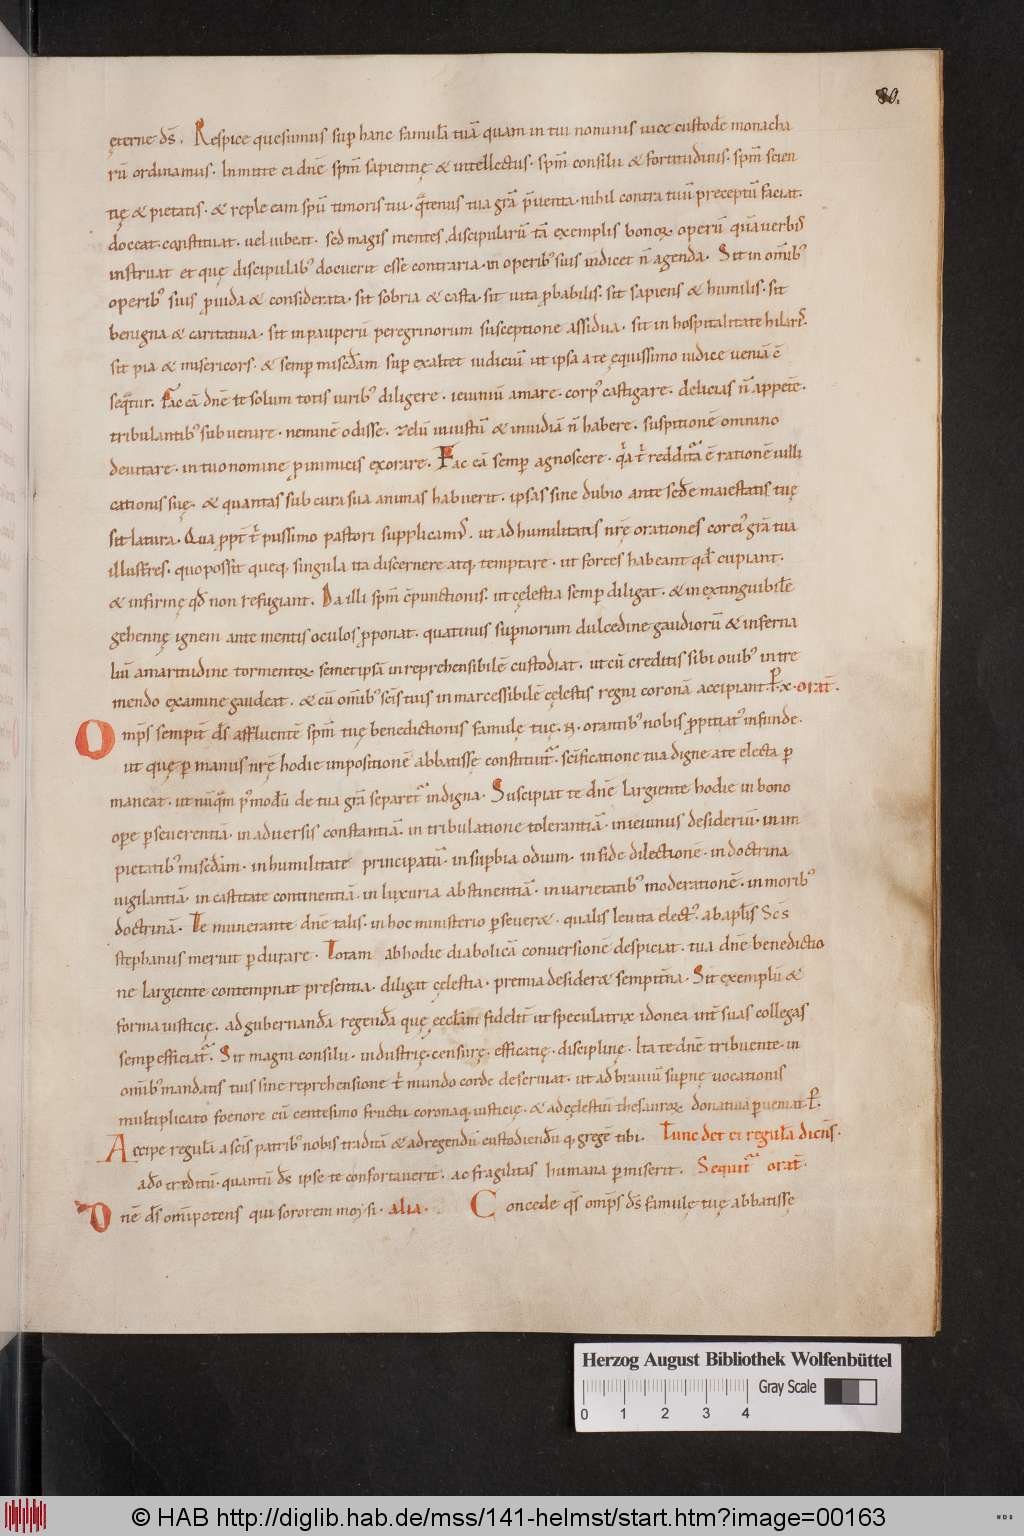 80.
ęterne ds̄. Respice quesumus sup̄ hanc famulā tuā quam in tui nominis uice custodē monacha
rū ordinamus. Inmitte ei dnē spm̄ sapientię & intellectus. spm̄ consilii & fortitudinis. spm̄ scien
tię & pietatis. & reple eam spū timoris tui. q̄tenus tua grā p̄uenta. nihil contra tuū preceptū faciat.
doceat. constituat. uel iubeat. sed magis mentes discipularū tā exemplis bonoꝝ operū quā uerbis
instruat et quę discipulab᷒ docuerit esse contraria. in operib᷒ suis indicet n̄ agenda. Sit in om̄ib᷒
operib᷒ suis ꝓuida & considerata. sit sobria & casta. sit uita ꝓbabilis. sit sapiens & humilis. sit
benigna & caritatiua. sit in pauperū peregrinorum susceptione assidua. sit in hospitalitate hilaris.
sit pia & misericors. & semp̄ misc̄dam sup̄ exaltet iudiciū ut ipsa a te ęquissimo iudice ueniā c̄
seq̄tur. Fac eā dnē te solum totis uirib᷒ diligere. ieiuniū amare. corp᷒ castigare. delicias n̄ appetē.
tribulantib᷒ subuenire. neminē odisse. zelū iniustū & inuidiā n̄ habere. suspitionē omnino
deuitare. in tuo nomine ꝓ inimicis exorare. Fac eā semp̄ agnoscere. q̄a t̄ redditura ē rationē uilli
cationis suę. & quantas sub cura sua animas habuerit. ipsas sine dubio ante sedē maiestatis tuę
sit latura. Qua ꝓpt̄ t̄ piissimo pastori supplicam᷒. ut ad humilitatis nrę orationes cor ei᷒ grā tua
illustres. quo possit queq, singula ita discernere atq, temptare. ut fortes habeant qd̄ cupiant.
& infirmę qd̄ non refugiant. Da illi spm̄ cōpunctionis. ut cęlestia semp̄ diligat. & inextinguibilē
gehennę ignem ante mentis oculos ꝓponat. quatinus sup̄norum dulcedine gaudiorū & inferna
liū amaritudine tormentoꝝ semet ipsā inreprehensibilē custodiat. ut cū creditis sibi ouib᷒ in tre
mendo examine gaudeat. & cū om̄ib᷒ scīs tuis inmarcessibilē cęlestis regni coronā accipiant. P x. orat̄.
Omps sempit̄ ds̄ affluentē spm̄ tuę benedictionis famulę tuę. N. orantib᷒ nobis ꝓpitiat᷒ infunde.
ut quę p̱ manus nrę hodie impositionē abbatisse constituit᷒. scīficatione tua digne a te electa p̱
maneat. ut nūq̄m p᷒modū de tua grā separet᷒ indigna. Suscipiat te dnē largiente hodie in bono
ope p̱seuerentiā. in aduersis constantiā. in tribulatione tolerantiā. in ieiuniis desideriū. in im
pietatib᷒ misc̄dam. in humilitate principatū. in sup̄bia odium. in fide dilectionē. in doctrina
uigilantiā. in castitate continentiā. in luxuria abstinentiā. in uarietatib᷒ moderationē. in morib᷒
doctrinā. Te munerante dnē talis. in hoc ministerio p̱seuer&. qualis leuita elect᷒. ab aplīs Scs
stephanus meruit p̱durare. Totam ab hodie diabolicā conuersionē despiciat. tua dnē benedictio
ne largiente contempnat presentia. diligat cęlestia. premia desider& sempit̄na. Sit exemplū &
forma iusticię. ad gubernandā regendā quę ecclām fidelit̄ ut speculatrix idonea int̄ suas collegas
semp̄ efficiat᷒. Sit magni consilii. industrię. censurę. efficatię. disciplinę. Ita te dnē tribuente. in
om̄ib᷒ mandatis tuis sine reprehensione t̄ mundo corde deseruiat. ut ad brauiū sup̄nę uocationis
multiplicato foenore cū centesimo fructu coronaq, iusticię. & ad cęlestiū thesauroꝝ donatiua p̱ueniat. P.
Accipe regulā a scīs patrib᷒ nobis traditā & ad regendū custodiendū q, gregē tibi. Tunc det ei regulā dicēs.
a dō traditū. quantū ds̄ ipse te confortauerit. ac fragilitas humana p̱miserit. Sequit᷒ orat̄.
Dnē ds̄ om̄ipotens qui sororem moysi. alia. Concede qs̄ omps̄ ds̄ famulę tuę abbatisse
Herzog August Bibliothek Wolfenbüttel
Gray Scale
0 1 2 3 4
© HAB http://diglib.hab.de/mss/141-helmst/start.htm?image=00163